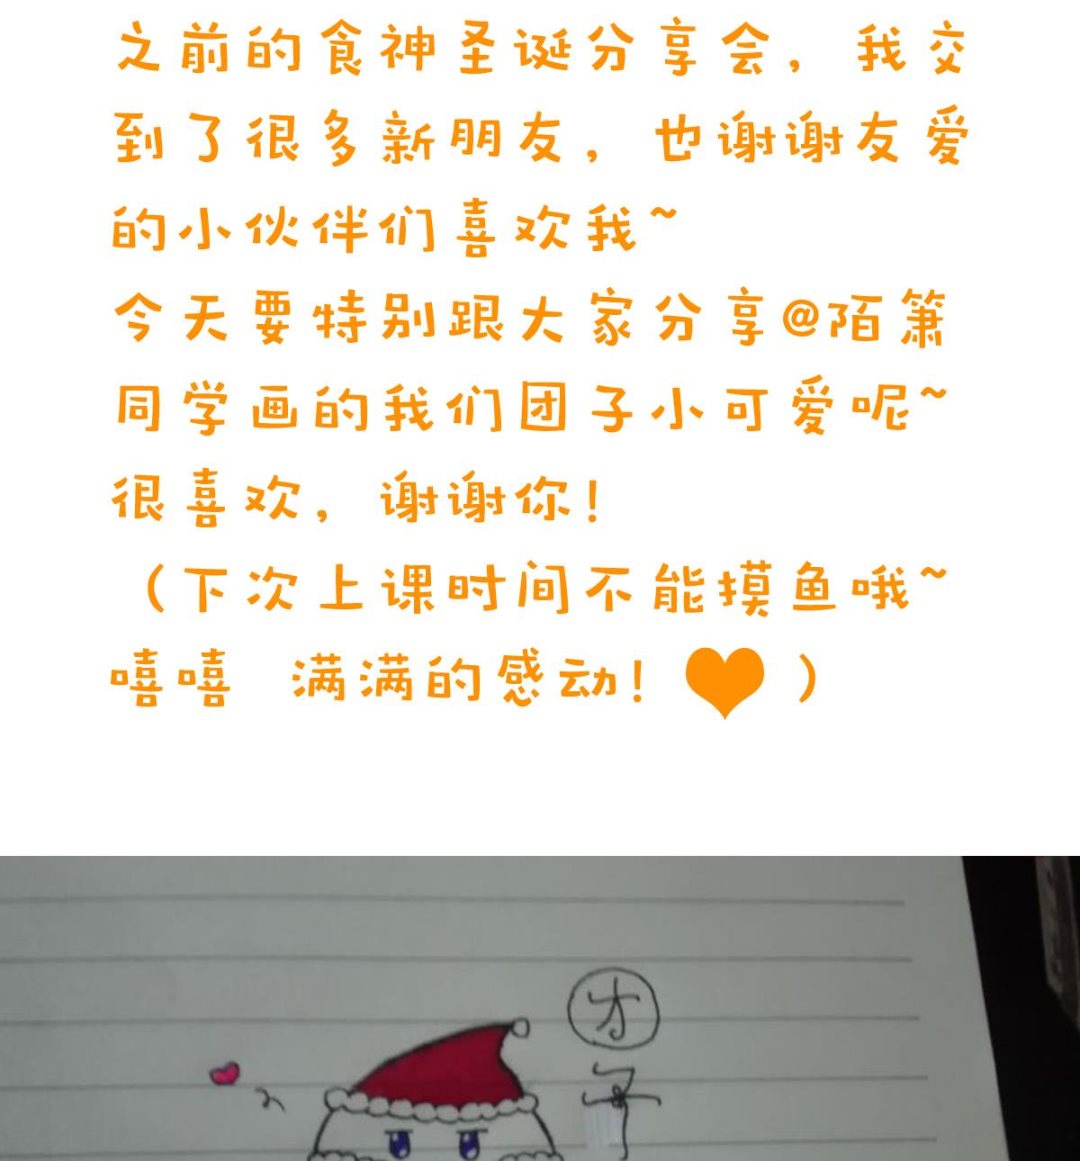 之前的食神圣诞分享会，我交
到了很多新朋友，也谢谢友爱
的小伙伴们喜欢我~
今天要特别跟大家分享@陌箫
同学画的我们团子小可爱呢~
很喜欢，谢谢你！
（下次上课时间不能摸鱼哦~
嘻嘻 满满的感动！❤）
团
子